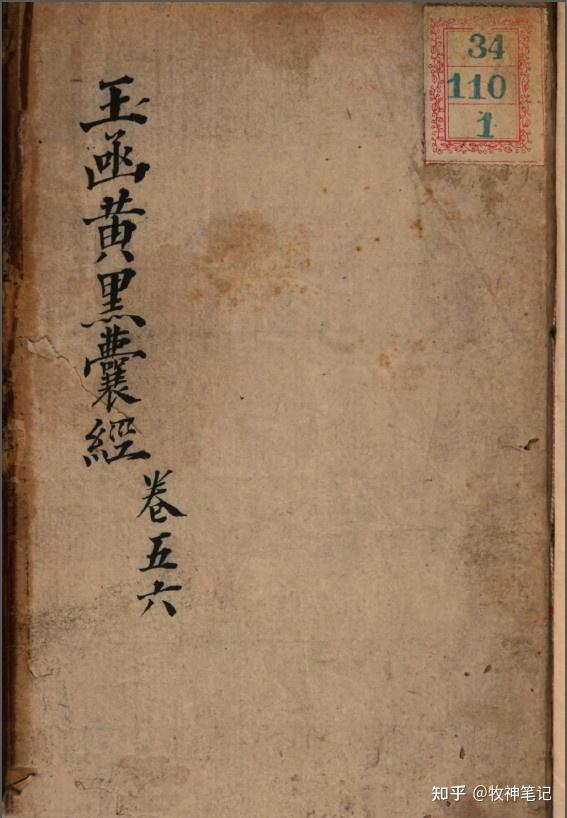 玉函黄黑囊經
卷五六
34
110
1
知乎 @牧神笔记